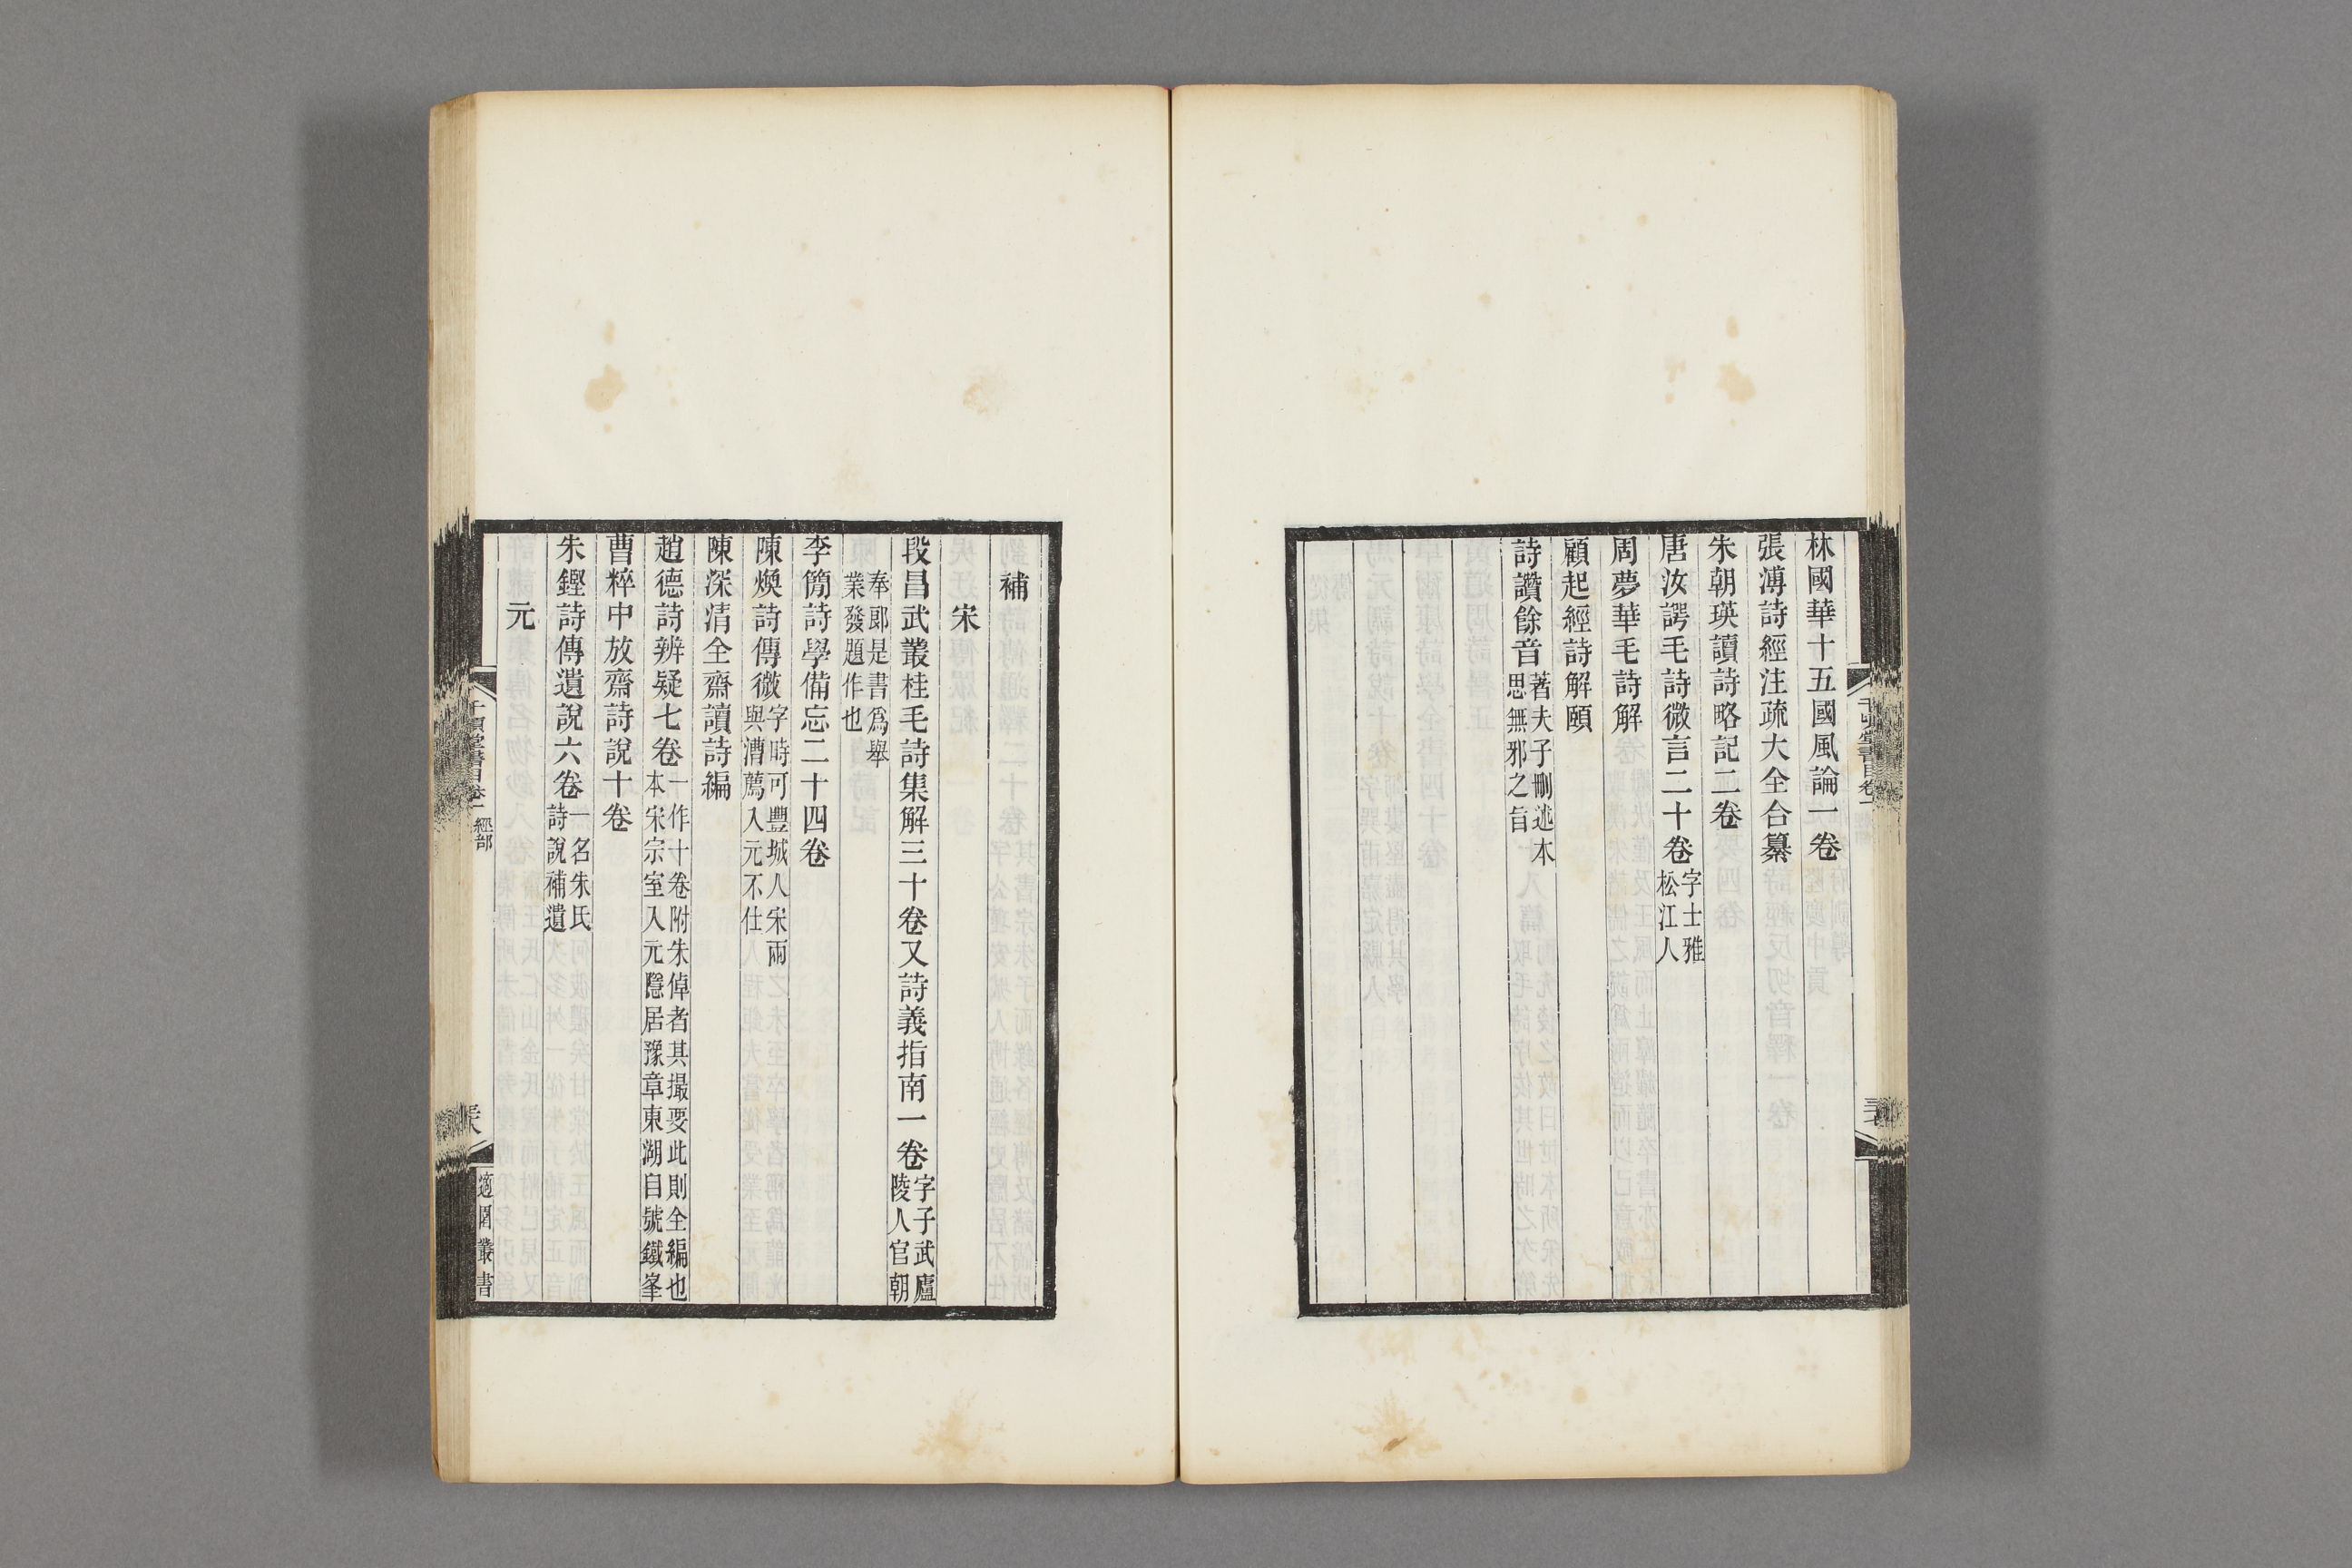 林國華十五國風論一卷
張溥詩經注疏大全合纂
朱朝瑛讀詩略記二卷
唐汝諤毛詩微言二十卷字士雅
松江人
周夢華毛詩解
顧起經詩解頤
詩讚餘音著夫子刪述本
思無邪之旨
千頃堂書目卷一
補
宋
段昌武叢桂毛詩集解三十卷又詩義指南一卷字子武廬
陵人官朝
奉郎是書爲舉
業發題作也
李簡詩學備忘二十四卷
陳煥詩傳微字時可豐城人宋兩
與漕薦入元不仕
陳深清全齋讀詩編
趙德詩辨疑七卷一作十卷附朱倬者其撮要此則全編也
本宋宗室入元隱居豫章東湖自號鐵峯
曹粹中放齋詩說十卷
朱鑑詩傳遺說六卷一名朱氏
詩說補遺
元
千頃堂書目卷一 經部
適園叢書